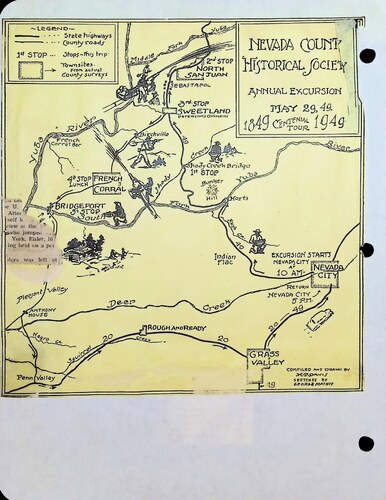 State highways
County roads
1ST STOP Stops - this trip
Townsites
from actual
County surveys
NEVADA COUNTY
HISTORICAL SOCIETY
ANNUAL EXCURSION
MAY 29, 49
1849 CENTENNIAL TOUR 1949
Middle Fork
Yuba
2ND STOP
NORTH
SAN JUAN
SEBASTAPOL
3RD STOP
SWEETLAND
Birchville
Yuba River
French
Corral Bar
4TH STOP
LUNCH
FRENCH
CORRAL
Shady
Shady Creek Bridge
1ST STOP
Bunker
Hill
Yuba River
BRIDGEPORT
5TH STOP
South
Harts
Indian
Flat
EXCURSION STARTS
NEVADA CITY
AT
10 AM
NEVADA
CITY
RETURN
NEVADA CITY
5 P.M.
York,
was left at
Pleasant Valley
Deer Creek
ANTHONY
HOUSE
ROUGH AND READY
Squirrel Creek
20
20
20
49
Penn Valley
GRASS
VALLEY
49
COMPILED AND DRAWN BY
SKETCHES BY
GEORGE MATHIS